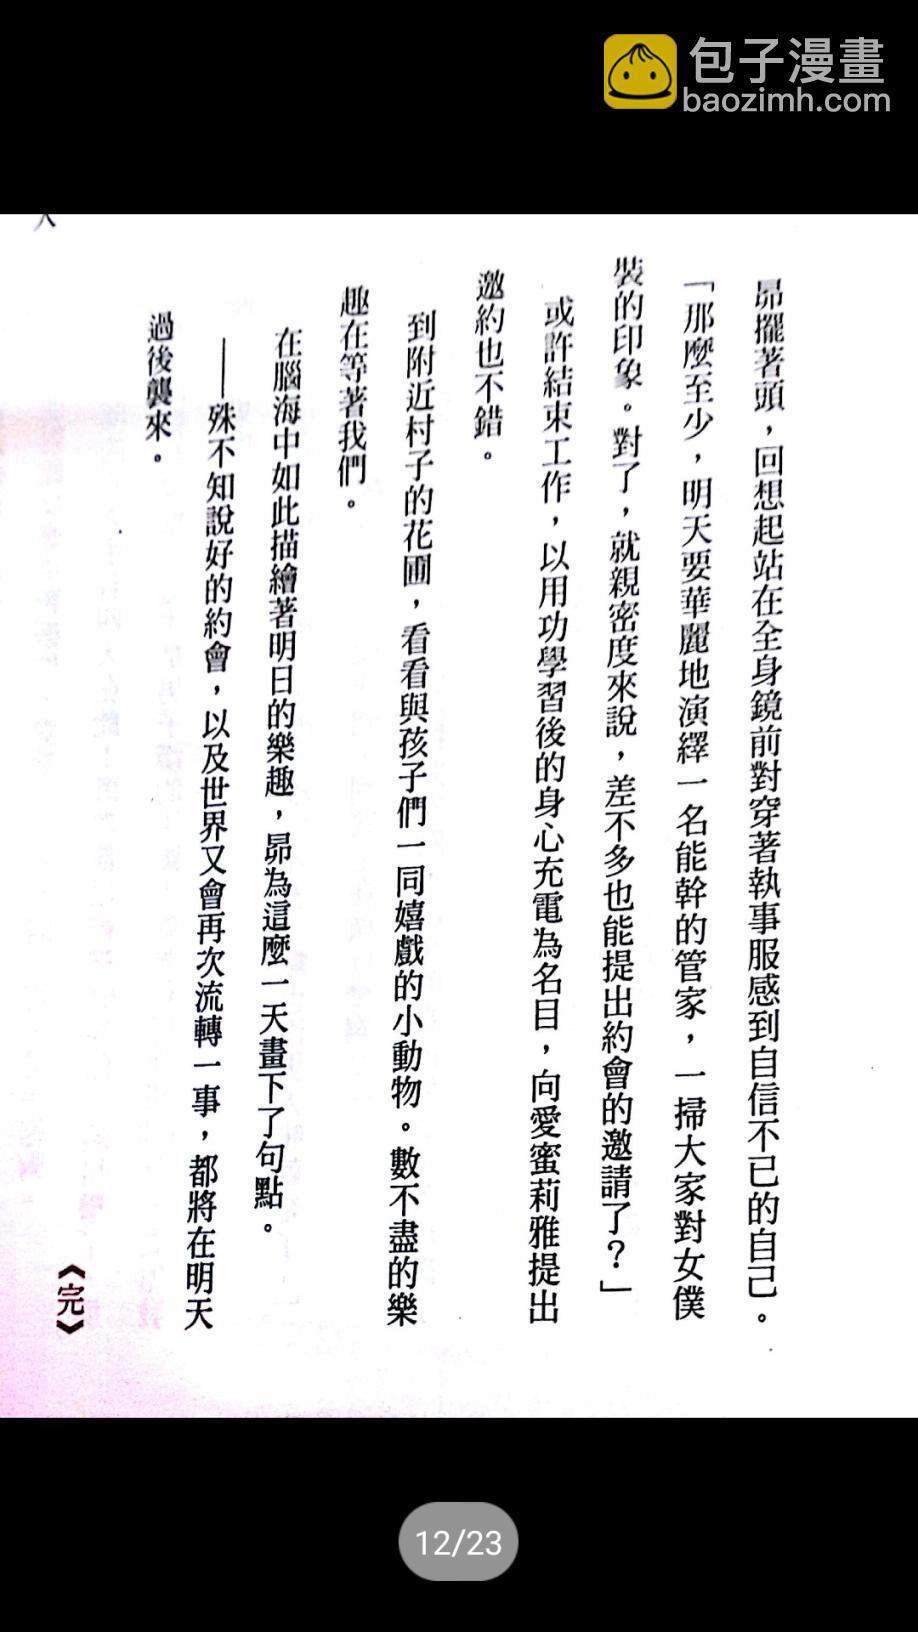 包子漫畫
baozimh.com
昴擺著頭，回想起站在全身鏡前對穿著執事服感到自信不已的自己。
「那麼至少，明天要華麗地演繹一名能幹的管家，一掃大家對女僕
裝的印象。對了，就親密度來說，差不多也能提出約會的邀請了？」
或許結束工作，以用功學習後的身心充電為名目，向愛蜜莉雅提出
邀約也不錯。
到附近村子的花圃，看看與孩子們一同嬉戲的小動物。數不盡的樂
趣在等著我們。
在腦海中如此描繪著明日的樂趣，昴為這麼一天畫下了句點。
——殊不知說好的約會，以及世界又會再次流轉一事，都將在明天
過後襲來。
《完》
12/23